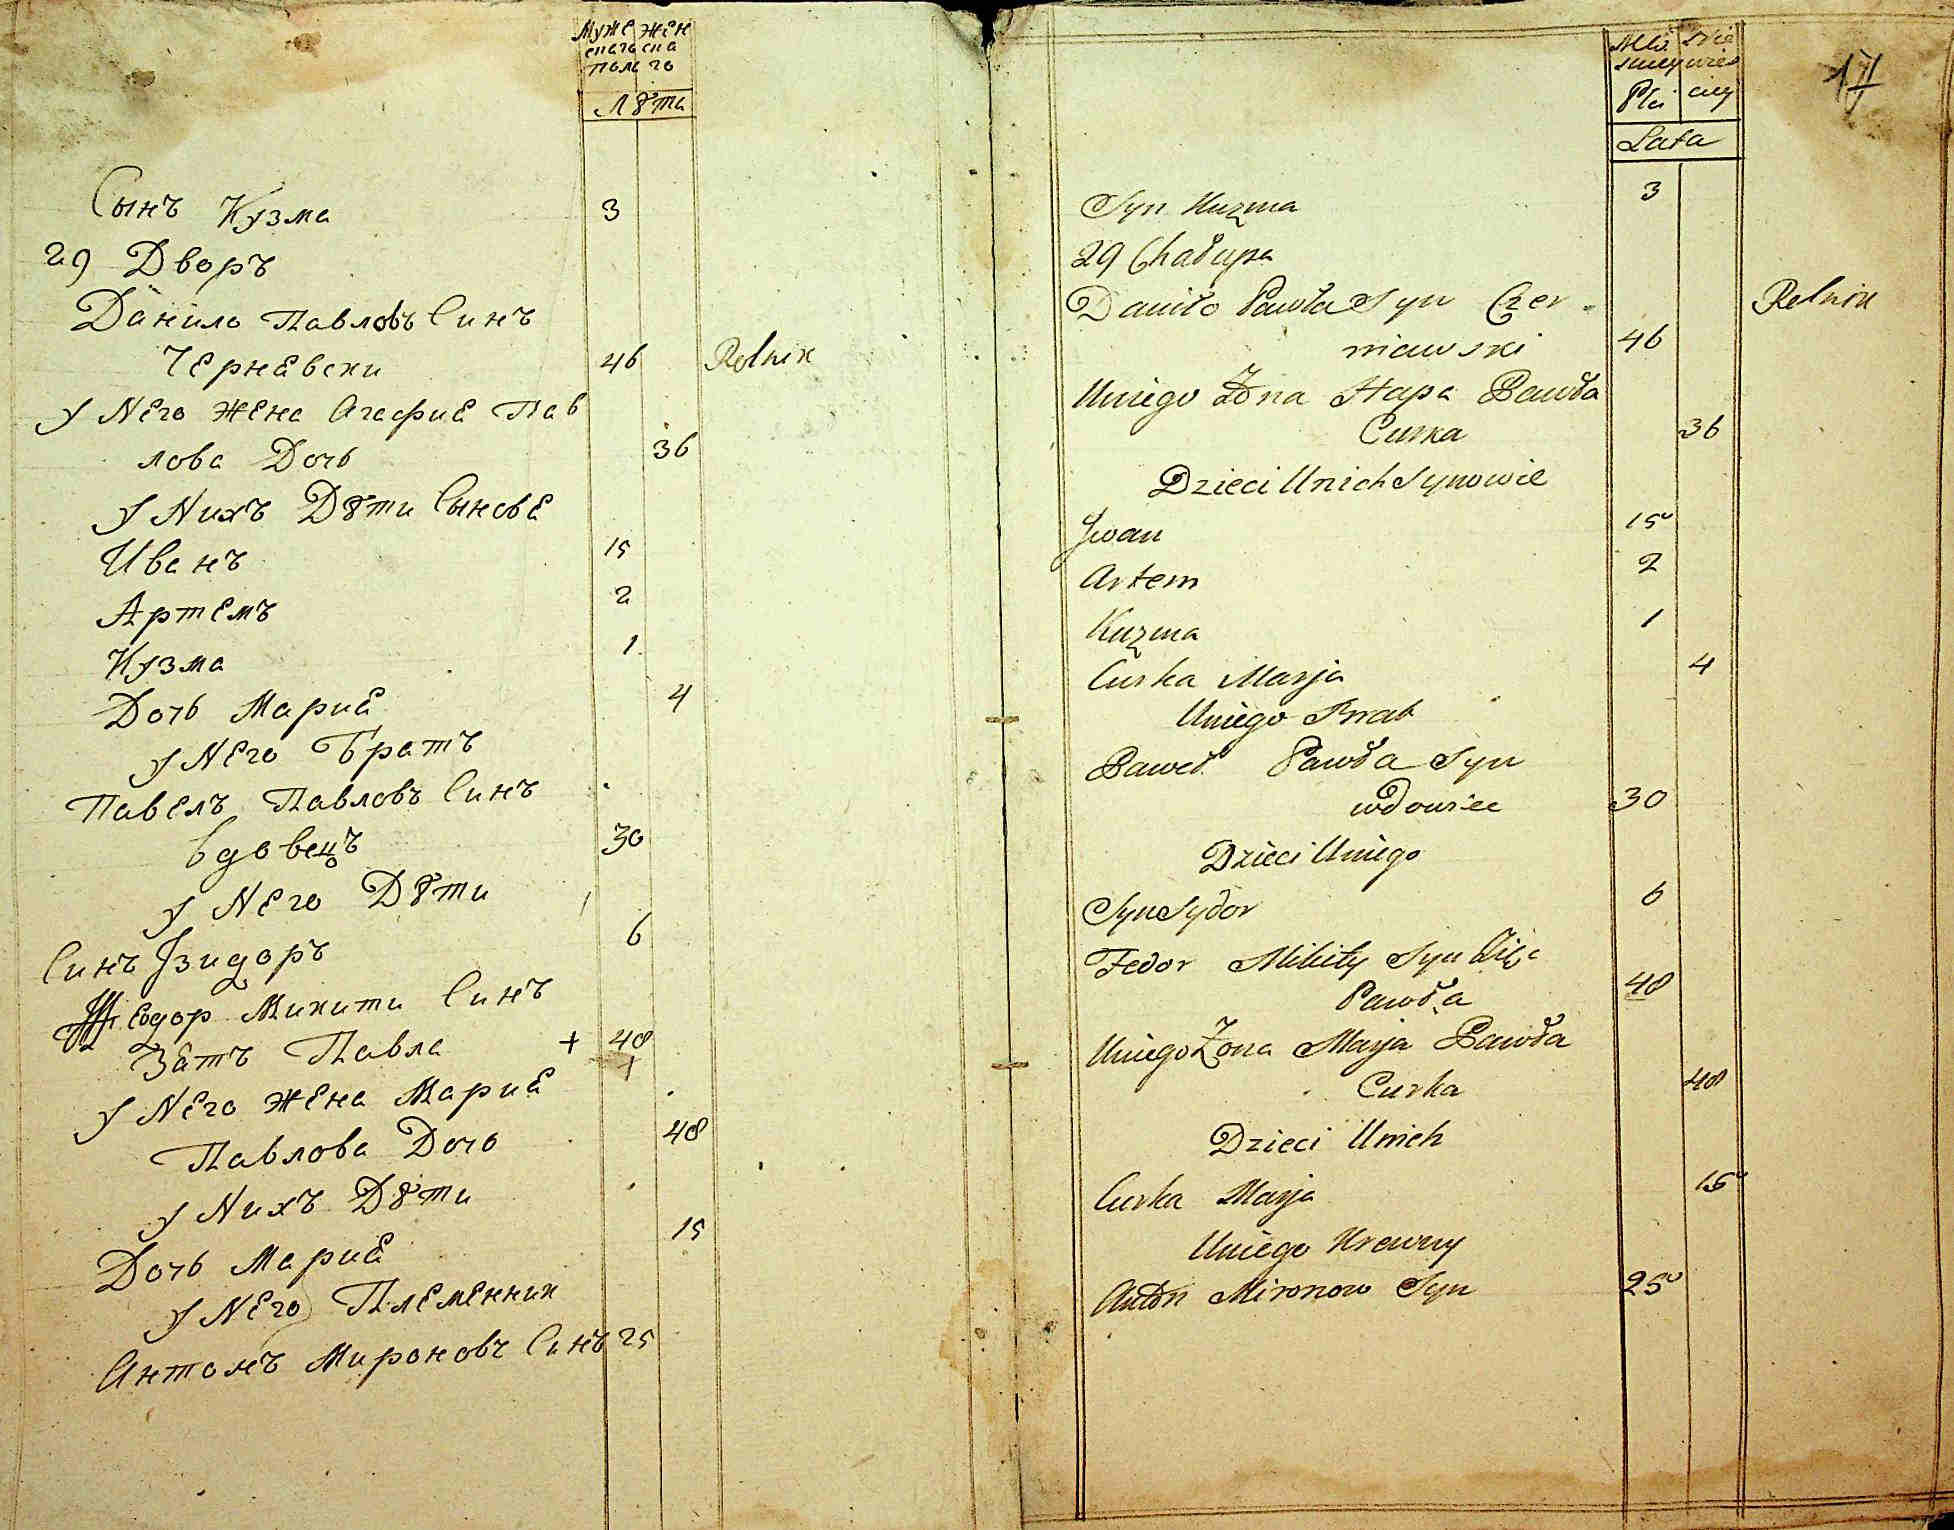 Муже жен
снаго сна
пола го
Лѣта
Сынъ Кузма 3
29 Дворъ
Данило Павловъ Синъ
Чернявски 46 Rolnik
У Него жена Агафия Пав
лова Дочь 36
У Нихъ Дѣти Сыновя
Иванъ 15
Артемъ 2
Кузма 1
Дочь Мария 4
У Него Братъ
Павелъ Павловъ Синъ
вдовецъ 30
У Него Дѣти
Синъ Ізидоръ 6
Ѳедор Микити Синъ
Зятъ Павла + 48
У Него жена Мария
Павлова Дочь 48
У Нихъ Дѣти
Дочь Мария 15
У Него Племенник
Антонъ Мироновъ Синъ 25
17
Płci
Lata
Syn Kuzma 3
29 Chałupa
Daniło Pawła Syn Czer Rolnik
niawski 46
Uniego Żona Hapa Pawła
Curka 36
Dzieci Unich Synowie
Jwan 15
Artem 2
Kuzma 1
Curka Marja 4
Uniego Brat
Paweł Pawła Syn
wdowiec 30
Dzieci Uniego
Syn Sydor 6
Fedor Mikity Syn Zięc
Pawła 48
Uniego Żona Marja Pawła
Curka 48
Dzieci Unich
Curka Marja 15
Uniego Krewny
Anton Mironow Syn 25